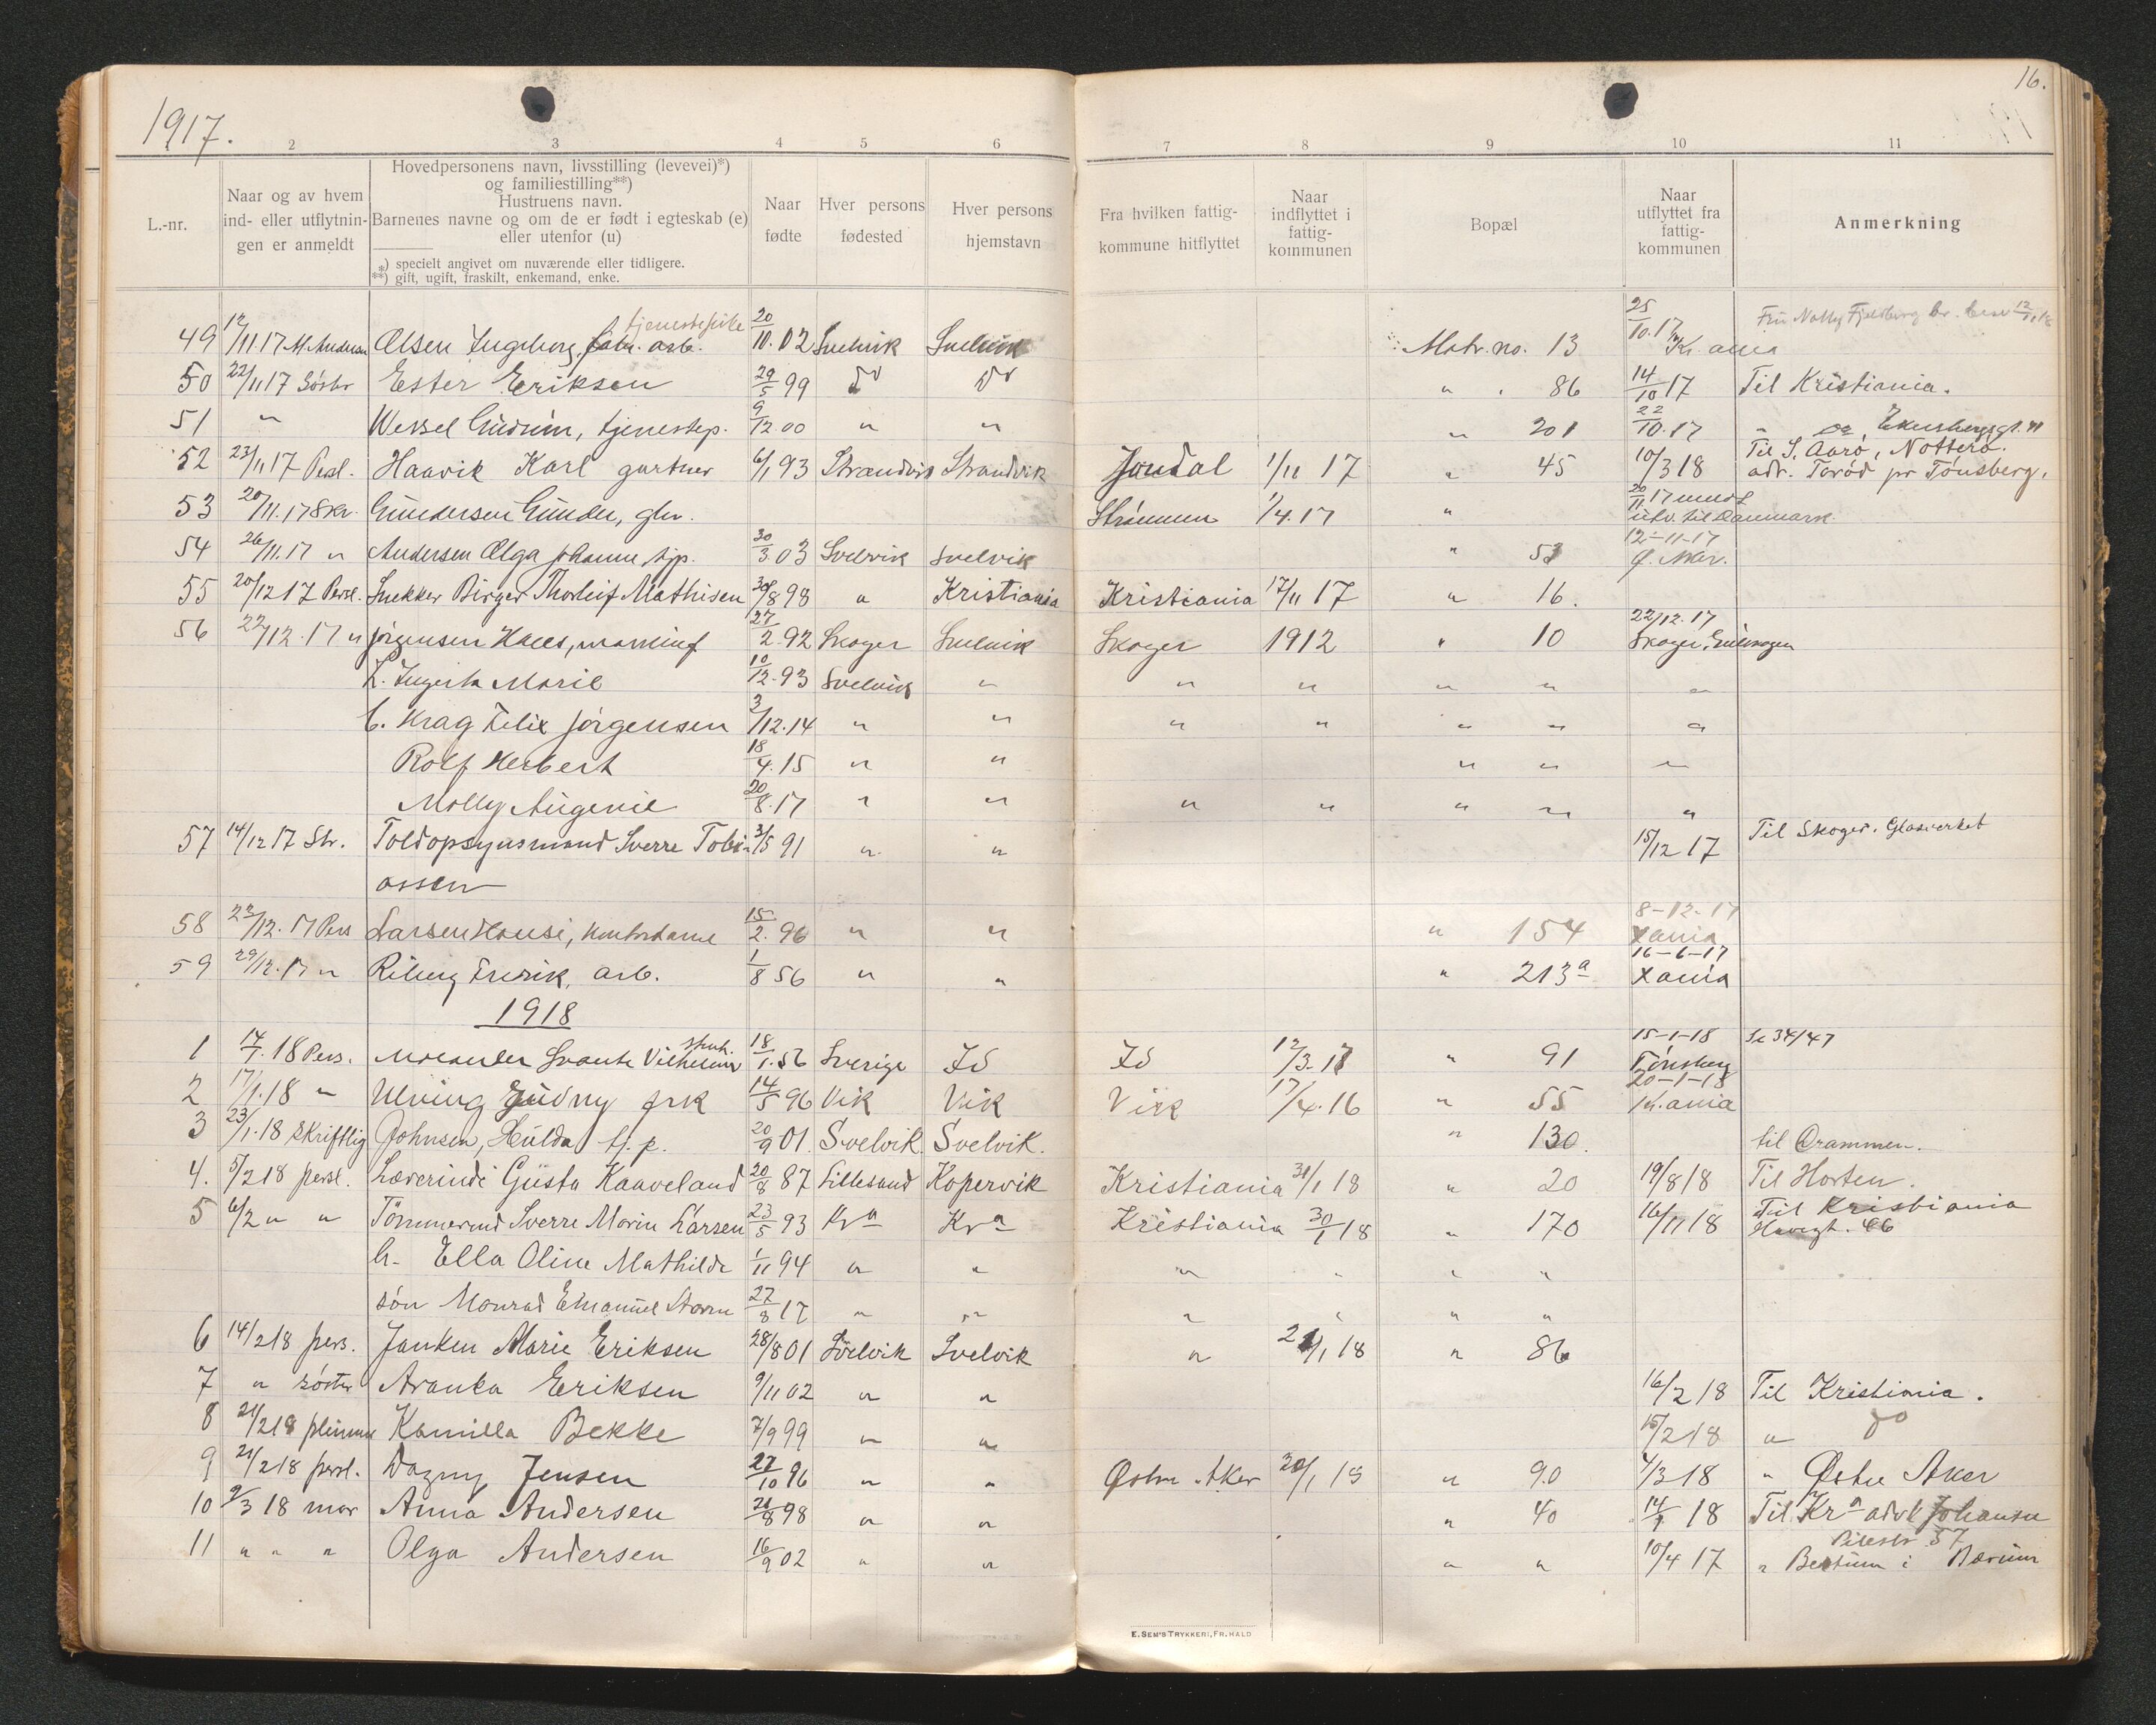 1917.
16.
2 3 4 5 6 7 8 9 10 11
L.-nr.
Naar og av hvem
ind- eller utflytnin-
gen er anmeldt
Hovedpersonens navn, livsstilling (levevei)*)
og familiestilling**)
Hustruens navn.
Barnenes navne og om de er født i egteskab (e)
eller utenfor (u)
*) specielt angivet om nuværende eller tidligere.
**) gift, ugift, fraskilt, enkemand, enke.
Naar
fødte
Hver persons
fødested
Hver persons
hjemstavn
Fra hvilken fattig-
kommune hitflyttet
Naar
indflyttet i
fattig-
kommunen
Bopæl
Naar
utflyttet fra
fattig-
kommunen
Anmerkning
tjenestepike
49 12/11.17 M. Andersen Olsen Ingeborg, arb. 20/10.02 Svelvik Svelvik Matr. no. 13 25/10.17 Kr.ania
50 22/11 17 Søster Ester Eriksen 29/5 99 do do " 86 14/10 17 Til Kristiania.
51 " Wessel Gudrun, tjenestep. 9/12 00 " " " 201 22/10.17 "
52 23/11 17 Persl. Haavik Karl gartner 6/1 93 Strandvik Strandvik Jondal 1/11 17 " 45 10/3 18 Til S. Aarø, Nøtterø.
adr. Torød pr Tønsberg.
53 20/11.17 Skr. Gundersen Gunder, glv. Strømmen 1/4.17 " 20/11 17
utv. til Danmark.
54 26/11.17 " Andersen Olga Johanne, tjp. 30/3 03 Svelvik Svelvik " 53 12-11-17
55 20/12 17 Persl. Snekker Birger Thorleif Mathisen 30/8 98 " Kristiania Kristiania 17/11 17 " 16.
56 22/12.17 " Jørgensen Hans, 27/2.92 Skoger Svelvik Skoger 1912 " 10 22/12.17
Skoger,
H. Ingerta Marie 10/12.93 Svelvik " " " " " "
b. Krag Felix Jørgensen 3/12.14 " " " " " " "
Rolf Herbert 18/4.15 " " " " "
Molly Augenie 20/8.17 " " " " " " "
57 14/12 17 Str. Toldopsynsmand Sverre Tobi- 31/5 91 " " 15/12 17 Til Skoger. Glasverket
assen
58 22/12.17 Pers Larsen Hansi, kontordame 15/2.96 " " " 154 8-12-17
Xania
59 29/12.17 " Riberg Fredrik, arb. 1/8 56 " " " 213a 16-6-17
Xania
1918
1 14/1.18 Pers. Svante Vilhelm 18/1.56 Sverige Id Id 12/3.17 " 91 15-1-18 Se 34/47
Tønsberg
2 17/1.18 " Gudny frk 14/5 96 Vik Vik Vik 17/4.16 " 55 20-1-18
Kr.ania
3 23/1.18 Skriftlig Johnsen, Hulda tj. p. 20/9 01. Svelvik. Svelvik. " 130. til Drammen.
4. 5/2 18 persl. Lærerinde Gusta Kaaveland 20/8 87 Lillesand Kopervik Kristiania 31/1 18 " 20 19/8 18 Til Horten.
5 6/2 " " Tømmermd Sverre Marin Larsen 23/5 93 Kra Kra Kristiania 30/1 18 " 170 16/11 18 Til Kristiania
h- Ella Oline Mathilde 1/11 94 " " " " " "
søn Monrad Emanuel Storm 27/8 17 " " " " " "
6 14/2 18 pers. Janken Marie Eriksen 28/8 01 Svelvik Svelvik " 21/1 18 " 86
7 " søster Aranka Eriksen 9/11 02 " " 16/2 18 Til Kristiania.
8 21/2 18 Kamilla Bekke 7/9 99 " " 15/2 18 " do
9 21/2 18 persl. Dagny Jensen 27/10 96 " " Østre Aker 20/1 18 " 90 4/3 18 " Østre Aker
10 9/3 18 mor Anna Andersen 21/8 98 " " " 40 14/1 18 Til Kra adr Johansen
Pilestr 57
11 " " " Olga Andersen 16/9 02 " " " " 10/4 17 " Bestum i Bærum
E. SEM'S TRYKKERI, FR. HALD